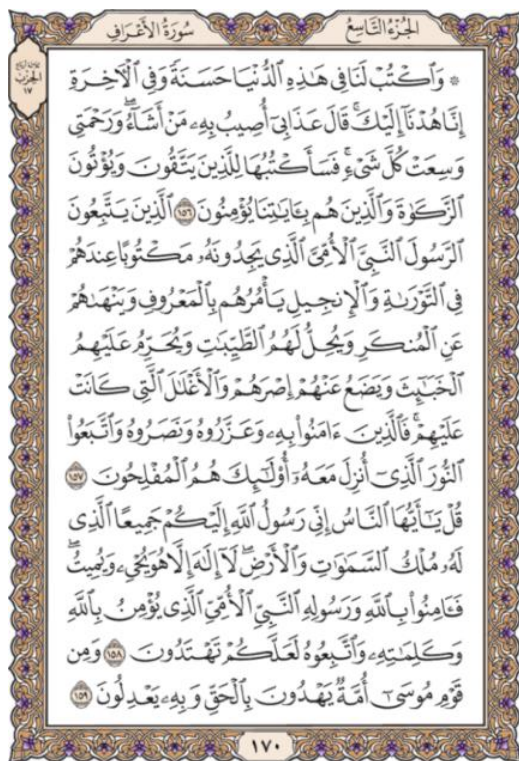 سُورَةُ الأَعْرَافِ
الجُزْءُ التَّاسِعُ
الحِزْبُ
١٧
۞ وَٱكْتُبْ لَنَا فِى هَٰذِهِ ٱلدُّنْيَا حَسَنَةً وَفِى ٱلْءَاخِرَةِ
إِنَّا هُدْنَآ إِلَيْكَ ۚ قَالَ عَذَابِىٓ أُصِيبُ بِهِۦ مَنْ أَشَآءُ ۖ وَرَحْمَتِى
وَسِعَتْ كُلَّ شَىْءٍ ۚ فَسَأَكْتُبُهَا لِلَّذِينَ يَتَّقُونَ وَيُؤْتُونَ
ٱلزَّكَوٰةَ وَٱلَّذِينَ هُم بِـَٔايَٰتِنَا يُؤْمِنُونَ ١٥٦ ٱلَّذِينَ يَتَّبِعُونَ
ٱلرَّسُولَ ٱلنَّبِىَّ ٱلْأُمِّىَّ ٱلَّذِى يَجِدُونَهُۥ مَكْتُوبًا عِندَهُمْ
فِى ٱلتَّوْرَىٰةِ وَٱلْإِنجِيلِ يَأْمُرُهُم بِٱلْمَعْرُوفِ وَيَنْهَىٰهُمْ
عَنِ ٱلْمُنكَرِ وَيُحِلُّ لَهُمُ ٱلطَّيِّبَٰتِ وَيُحَرِّمُ عَلَيْهِمُ
ٱلْخَبَٰٓئِثَ وَيَضَعُ عَنْهُمْ إِصْرَهُمْ وَٱلْأَغْلَٰلَ ٱلَّتِى كَانَتْ
عَلَيْهِمْ ۚ فَٱلَّذِينَ ءَامَنُوا۟ بِهِۦ وَعَزَّرُوهُ وَنَصَرُوهُ وَٱتَّبَعُوا۟
ٱلنُّورَ ٱلَّذِىٓ أُنزِلَ مَعَهُۥٓ ۙ أُو۟لَٰٓئِكَ هُمُ ٱلْمُفْلِحُونَ ١٥٧
قُلْ يَٰٓأَيُّهَا ٱلنَّاسُ إِنِّى رَسُولُ ٱللَّهِ إِلَيْكُمْ جَمِيعًا ٱلَّذِى
لَهُۥ مُلْكُ ٱلسَّمَٰوَٰتِ وَٱلْأَرْضِ ۖ لَآ إِلَٰهَ إِلَّا هُوَ يُحْىِۦ وَيُمِيتُ ۖ
فَـَٔامِنُوا۟ بِٱللَّهِ وَرَسُولِهِ ٱلنَّبِىِّ ٱلْأُمِّىِّ ٱلَّذِى يُؤْمِنُ بِٱللَّهِ
وَكَلِمَٰتِهِۦ وَٱتَّبِعُوهُ لَعَلَّكُمْ تَهْتَدُونَ ١٥٨ وَمِن
قَوْمِ مُوسَىٰٓ أُمَّةٌ يَهْدُونَ بِٱلْحَقِّ وَبِهِۦ يَعْدِلُونَ ١٥٩
١٧٠